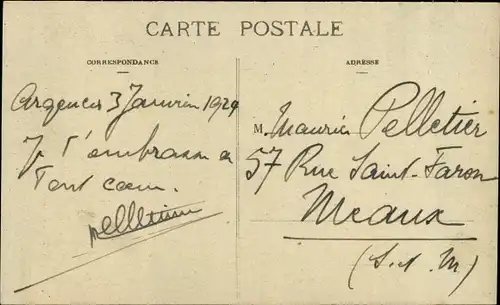 CARTE POSTALE
CORRESPONDANCE
ADRESSE
Argences 3 Janvier 1929
Je t'embrasse de
Tout cœur.
M. Maurice Pelletier
57 Rue Saint-Faron
Meaux
(S. et M)